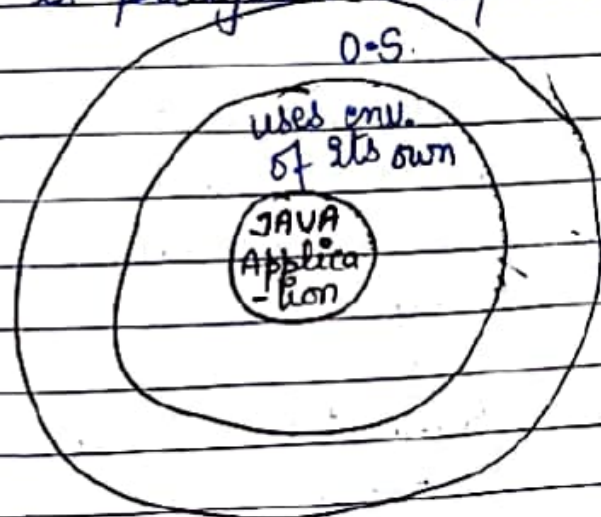 O.S.
uses env.
of its own
JAVA
Applica
-tion